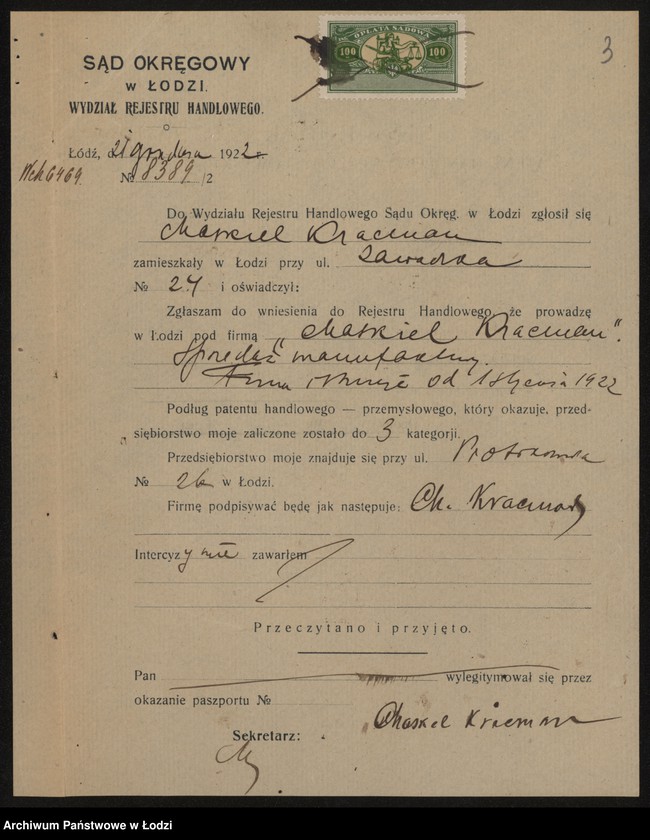 OPŁATA SĄDOWA
100 100
3
SĄD OKRĘGOWY
W ŁODZI.
WYDZIAŁ REJESTRU HANDLOWEGO.
Łódź, d. 21 grudnia 1922 r.
№ 8389/2
Do Wydziału Rejestru Handlowego Sądu Okręg. w Łodzi zgłosił się
Chaskiel Kracman
zamieszkały w Łodzi przy ul. Zawadzka
№ 24 i oświadczył:
Zgłaszam do wniesienia do Rejestru Handlowego, że prowadzę
w Łodzi pod firmą „Chaskiel Kracman".
Sprzedaż manufaktury.
Firma istnieje od 1 stycznia 1922
Podług patentu handlowego — przemysłowego, który okazuje, przed-
siębiorstwo moje zaliczone zostało do 3 kategorji.
Przedsiębiorstwo moje znajduje się przy ul. Piotrkowska
№ 26 w Łodzi.
Firmę podpisywać będę jak następuje: Ch. Kracman
Intercyzy nie zawarłem
Przeczytano i przyjęto.
Pan wylegitymował się przez
okazanie paszportu №
Chaskel Kracman
Sekretarz:
Archiwum Państwowe w Łodzi